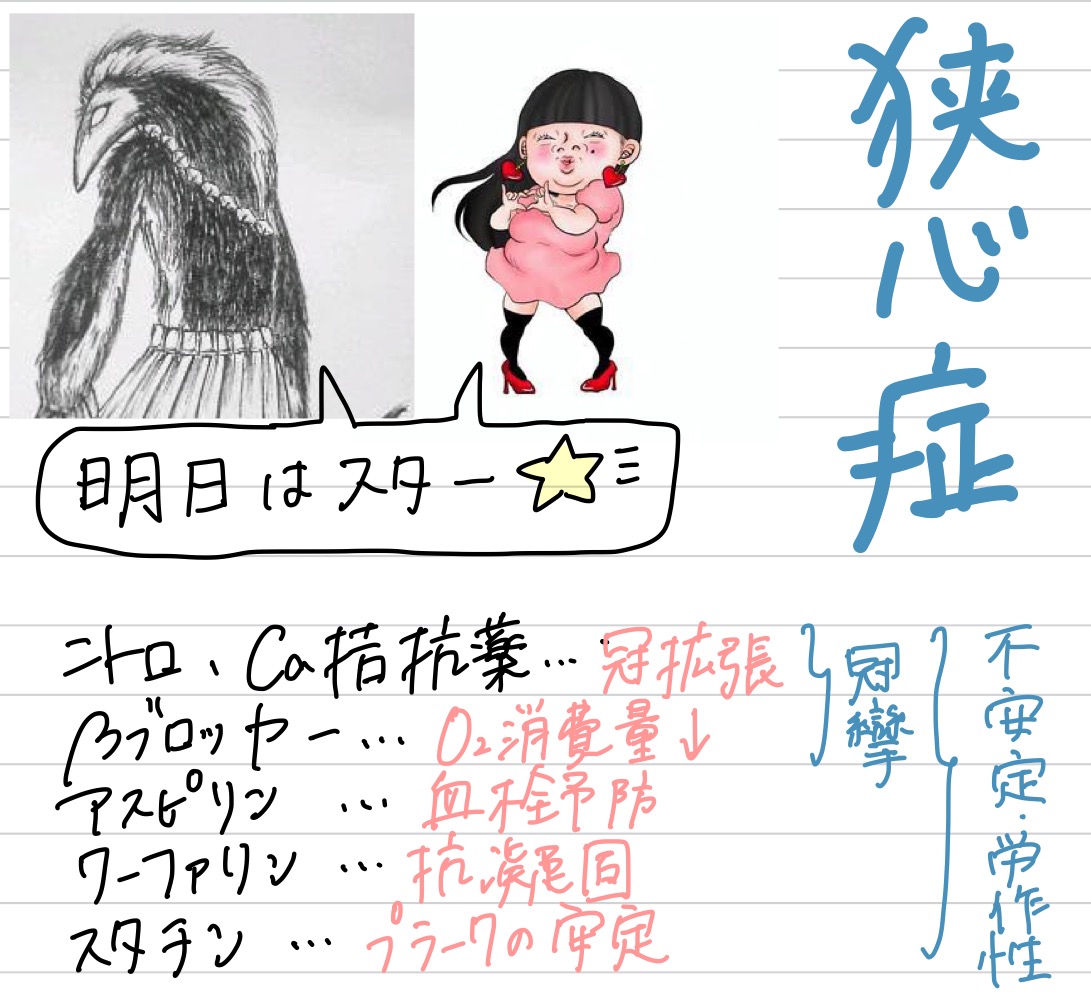 狭心症
明日はスター
ニトロ、Ca拮抗薬… 冠拡張
βブロッカー… O₂消費量↓
アスピリン … 血栓予防
ワーファリン … 抗凝固
スタチン … プラークの安定
冠攣
不安定・労作性